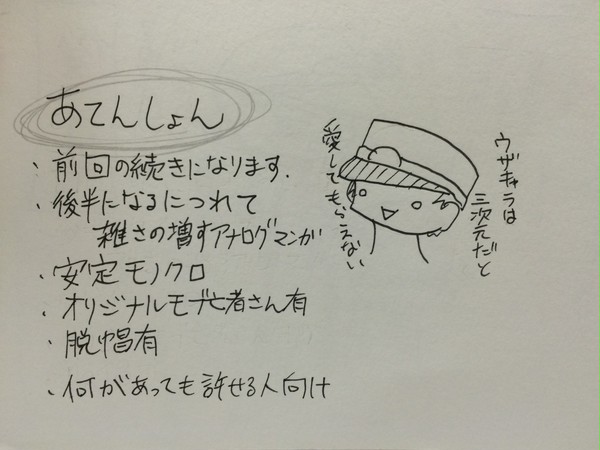 あてんしょん
・前回の続きになります.
・後半になるにつれて
雑さの増すアナログマンガ
・安定モノクロ
・オリジナルモブ亡者さん有
・脱帽有
・何があっても許せる人向け
ウザキャラは
三次元だと
愛してもらえない